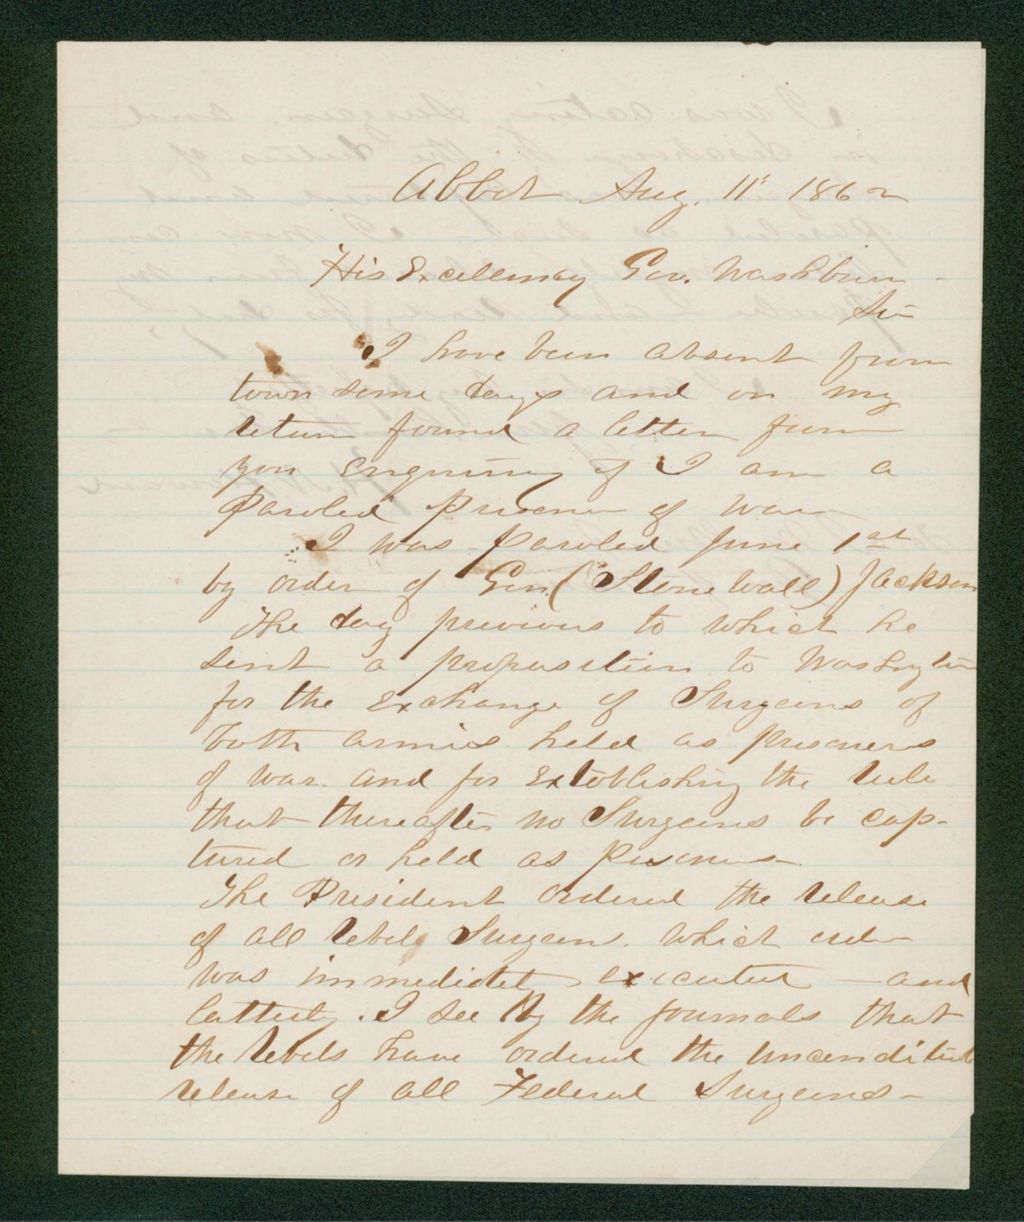 Abbot Aug. 11th 1862
His Excellency Gov. Washburn -
Sir
I have been absent from
town some days and on my
return found a letter from
you enquiring if I am a
Paroled Prisoner of war
I was paroled June 1st
by order of Gen. (Stone Wall) Jackson
The day previous to which he
sent a proposition to Washington
for the exchange of Surgeons of
both armies held as prisoners
of war and for Establishing the rule
that thereafter no Surgeons be cap-
tured or held as prisoners
The President ordered the release
of all rebel Surgeons. which order
was immediately executed - and
latterly I see by the journals that
the rebels have ordered the unconditional
release of all Federal Surgeons -